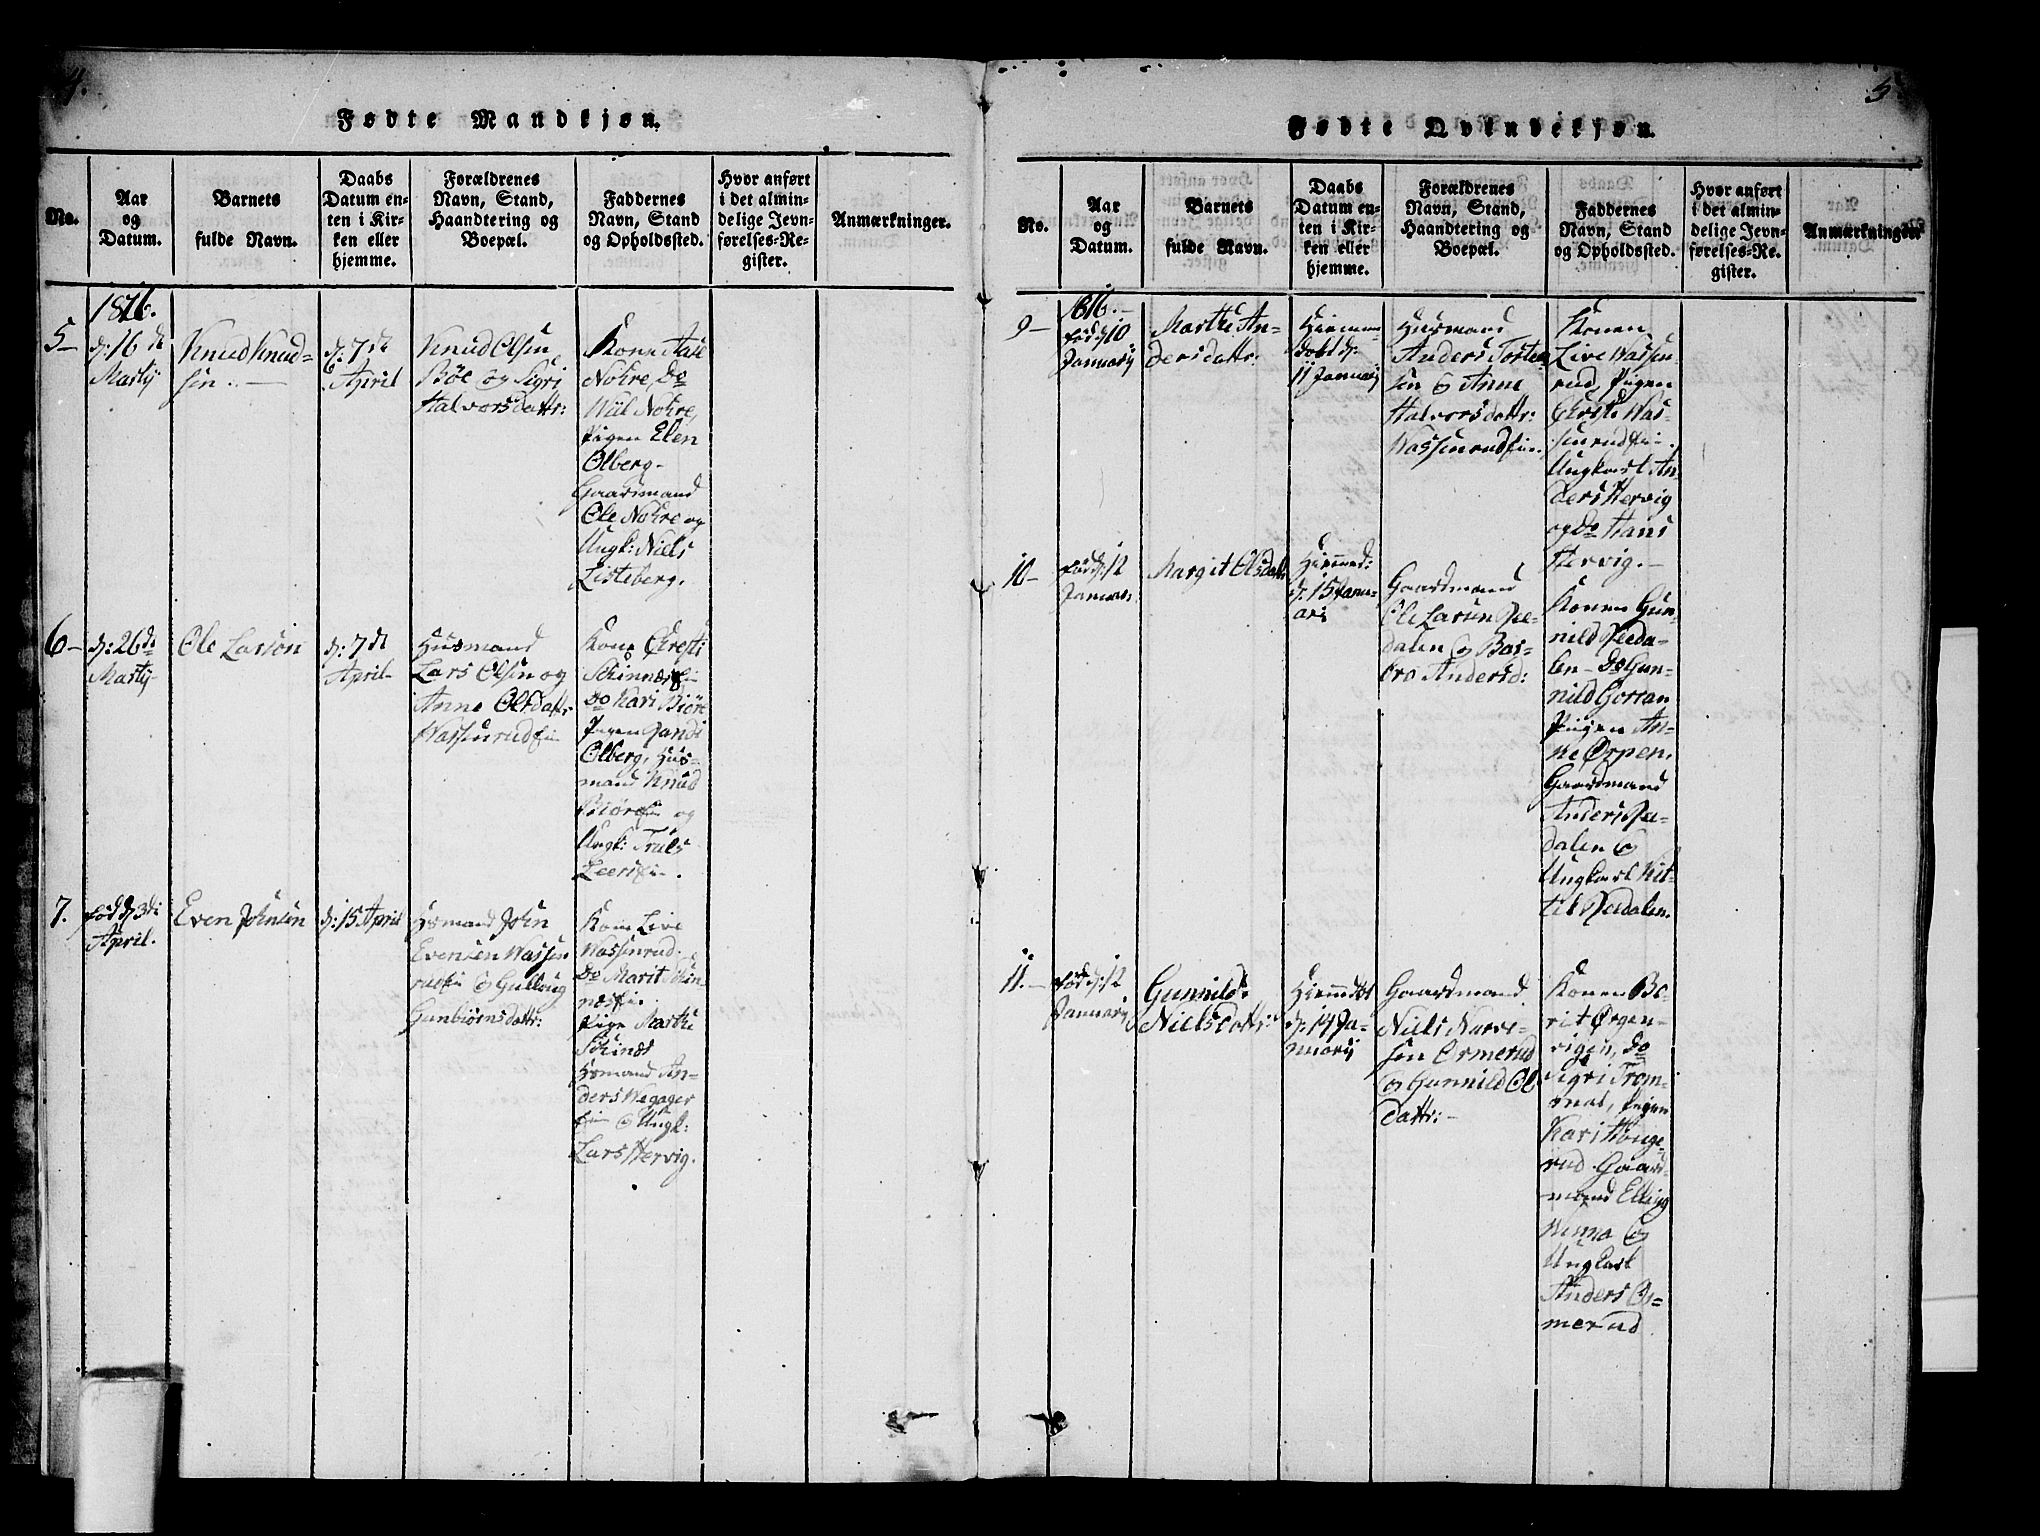 4.
Fødte Mandkjøn.
No.
Aar
og
Datum.
Barnets
fulde Navn.
Daabs
Datum en-
ten i Kir-
ken eller
hjemme.
Forældrenes
Navn, Stand,
Haandtering og
Boepæl.
Faddernes
Navn, Stand
og Opholdssted.
Hvor anført
i det almin-
delige Jevn-
førelses-Re-
gister.
Anmærkninger.
1816.
5
d: 16 de
Martj
Knud Knud-
sen.
d: 7 de
April
Knud Olsen
Böe og Sigri
Halvorsdattr:
Kone Aase
Nohre, Do
Nohre,
Pigen Elen
Olberg.
Gaardmand
Ole Nohre og
Ungk: Niels
Listeberg.
6
d: 26 de
Martj
Ole Larsön
d: 7 de
April
Husmand
Lars Olsen og
Anne Olsdattr
Wassenrudein
Kone Kresti
Skinnesein
Do Kari Biöre
Pigen Randi
Olberg, Hus-
mand Knud
Biöreein og
Ungk: Truls
Leersein.
7.
föd d 3 di
April.
Even Johnsen
d: 15 April
Hsmand John
Evensen Wassen
rudein og Gullaug
Gunbiörnsdattr:
Kone Live
Wassenrud.
Do Marit Skin-
nesein.
Pige Marthe
Skines
Hsmand An-
ders Wegager
ein og Ungk:
Lars Hervig.
5
Fødte Qvindekjøn.
No.
Aar
og
Datum.
Barnets
fulde Navn.
Daabs
Datum en-
ten i Kir-
ken eller
hjemme.
Forældrenes
Navn, Stand,
Haandtering og
Boepæl.
Faddernes
Navn, Stand
og Opholdssted.
Hvor anført
i det almin-
delige Jevn-
førelses-Re-
gister.
Anmærkninger
1816.
9
föd d 10
Januarij
Marthe An-
dersdattr:
Hiemme
döbt d:
11 Januarij
Husmand
Anders Torsten
sen og Anne
Halvorsdattr:
Wassenrudein.
Konen
Live Wassen-
rud, Pigen
Kirsti Was-
senrudein.
Ungkarl An-
ders Hervig
og Do Hans
Hervig.
10
föd d: 12
Januar:
Margit Olsdattr
Hiemmed:
d: 15 Janu-
ari
Gaardmand
Ole Larsen Vee-
dalen og Bar-
bro Andersd:
Konen Gun-
nild Veeda-
len Do Gun-
nild Gorran
Pigen An-
ne Ørpen.
Gaardmand
Anders Vee-
dalen og
Ungkarl Kit-
til Veedalen.
11.
föd d: 12
Januarij
Gunnild
Nielsdattr:
Hiemdöbt
d: 14 Ja-
nuarij
Gaardmand
Niels Narve-
sön Ormerud
og Gunnild Ols
dattr:
Konen Be-
rit Örgen-
vigen, Do
Sigri Trom-
mal, Pigen
Kari Houge-
rud. Gaard-
mand Elling
og
Ungkarl
Anders Or-
merud